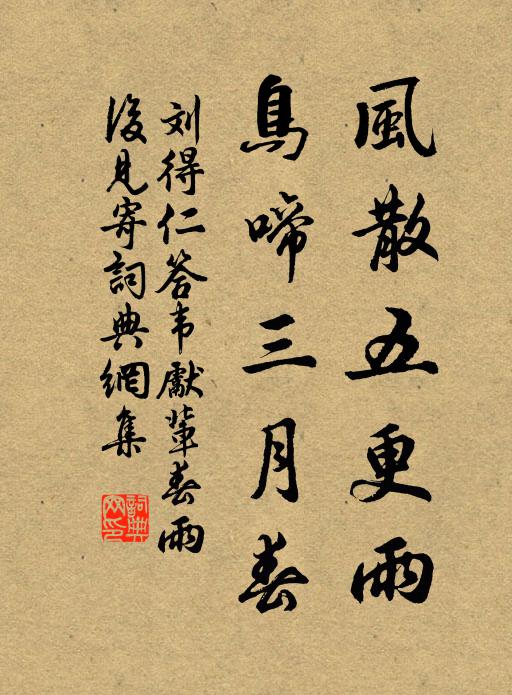 風散五更雨
鳥啼三月春
刘得仁答韦獻輩春雨
後見寄詞典網集
詞典
网印